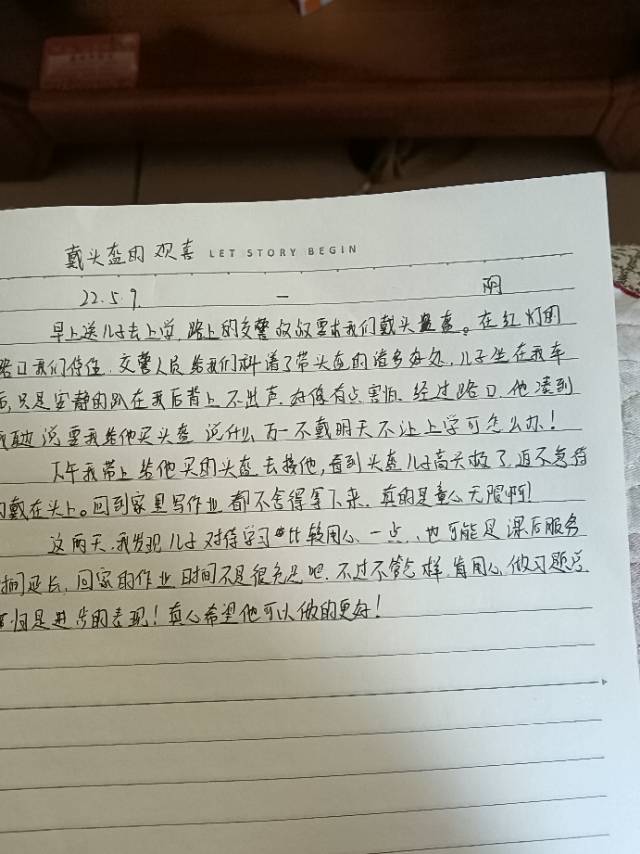 戴头盔的观喜 LET STORY BEGIN
22.5.9. 一 阴
早上送儿子去上学,路上的交警叔叔要求我们戴头盔。在红灯的
路口我们停住,交警人员给我们科谱了带头盔的诸多好处,儿子坐在我车
后,只是安静的趴在我后背上不出声,好像有点害怕。经过路口,他凑到
说要我给他买头盔 说什么万一不戴明天不让上学可怎么办!
下午我带上给他买的头盔去接他,看到头盔儿子高兴极了,迫不急待
的戴在头上。回到家里写作业都不舍得拿下来,真的是童心无限啊!
这两天,我发现儿子对待学习比较用心一点,也可能是课后服务
时间延长,回家的作业时间不是很充足吧,不过不管怎样,肯用心做习题总
归是进步的表现!真心希望他可以做的更好!